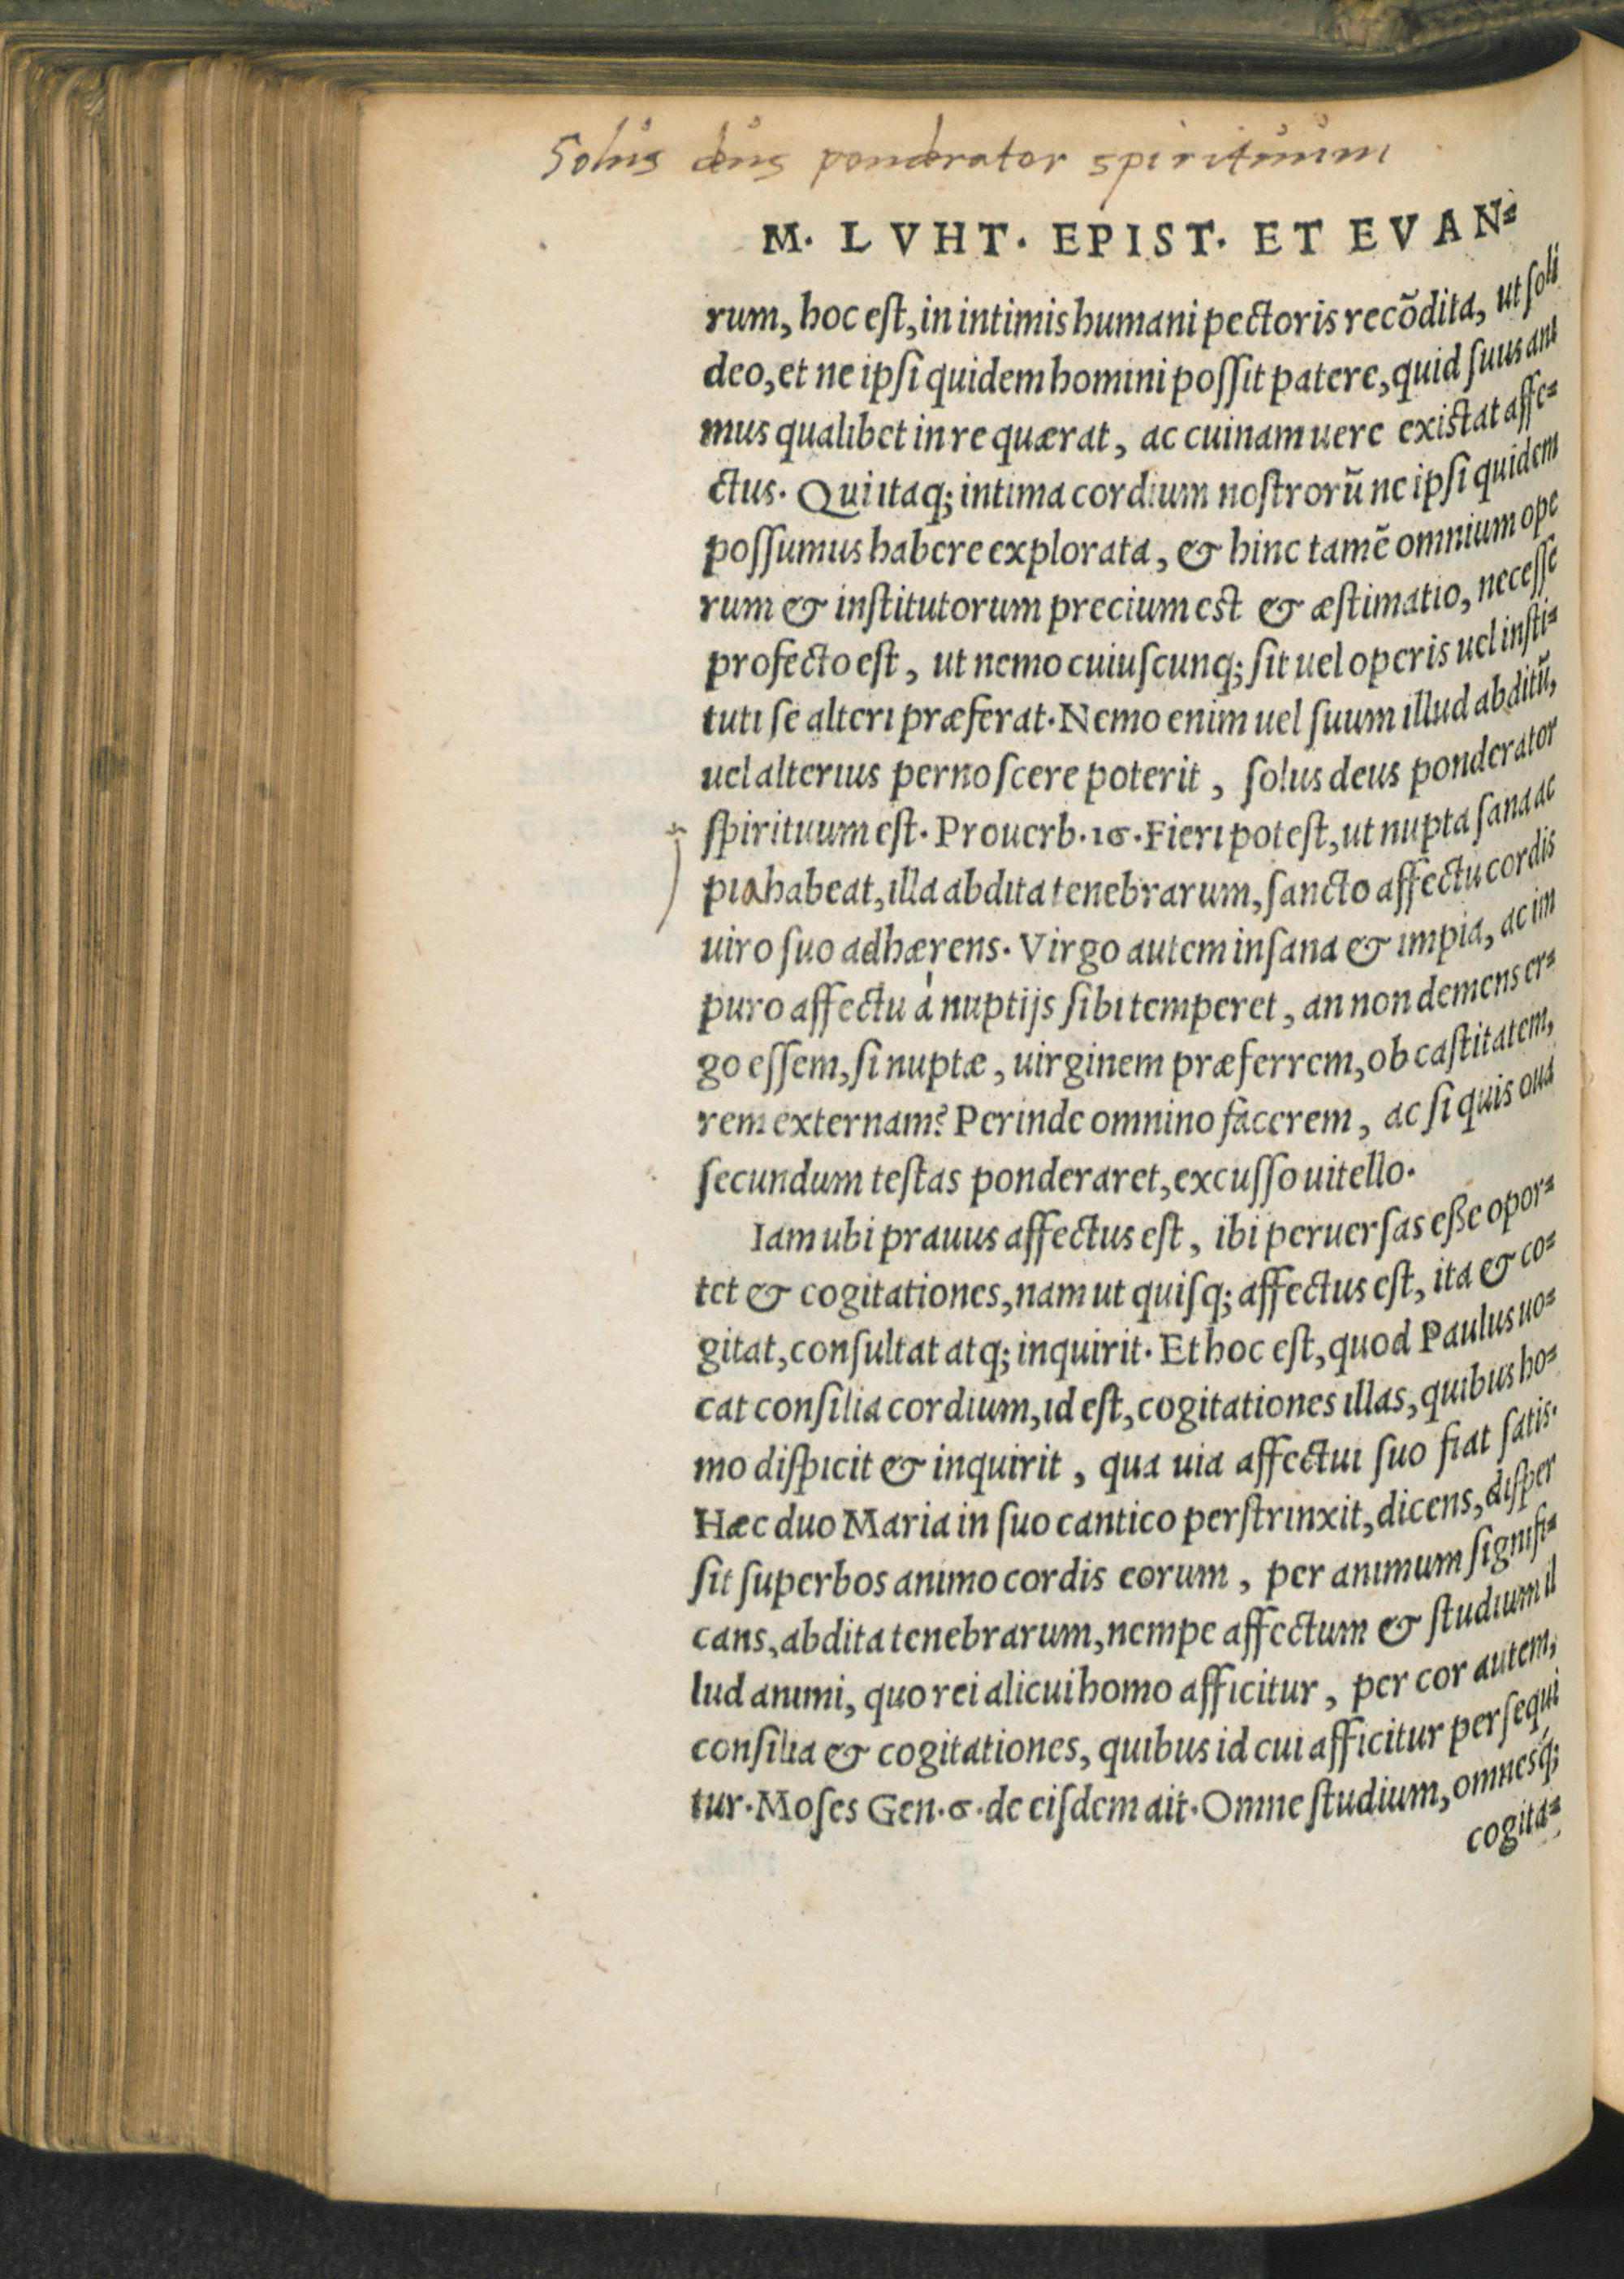 Solus deus ponderator spirituum
M. LVHT. EPIST. ET EVAN⸗
rum, hoc eſt, in intimis humani pectoris recõdita, ut ſoli
deo, et ne ipſi quidem homini poſſit patere, quid ſuus ani
mus qualibet in re quærat, ac cuinam uere existat affe⸗
ctus. Qui itaq; intima cordium noſtrorũ ne ipſi quidem
poſſumus habere explorata, & hinc tamẽ omnium ope
rum & inſtitutorum precium est & æſtimatio, neceſſe
profecto eſt, ut nemo cuiuſcunq; ſit uel operis uel inſti⸗
tuti ſe alteri præferat. Nemo enim uel ſuum illud abditũ,
uel alterius pernoſcere poterit, ſolus deus ponderator
ſpirituum eſt. Prouerb. 16. Fieri poteſt, ut nupta ſana ac
pia habeat, illa abdita tenebrarum, ſancto affectu cordis
uiro ſuo adhærens. Virgo autem inſana & impia, ac im
puro affectu à nuptijs ſibi temperet, an non demens er⸗
go eſſem, ſi nuptæ, uirginem præferrem, ob caſtitatem,
rem externam? Perinde omnino facerem, ac ſi quis oua
ſecundum teſtas ponderaret, excuſſo uitello.
Iam ubi prauus affectus eſt, ibi peruerſas eße opor⸗
tet & cogitationes, nam ut quiſq; affectus eſt, ita & co⸗
gitat, conſultat atq; inquirit. Et hoc eſt, quod Paulus uo⸗
cat conſilia cordium, id eſt, cogitationes illas, quibus ho⸗
mo diſpicit & inquirit, qua uia affectui ſuo fiat ſatis.
Hæc duo Maria in ſuo cantico perſtrinxit, dicens, diſper
ſit ſuperbos animo cordis eorum, per animum ſignifi⸗
cans, abdita tenebrarum, nempe affectum & ſtudium il
lud animi, quo rei alicui homo afficitur, per cor autem,
conſilia & cogitationes, quibus id cui afficitur perſequi
tur. Moſes Gen. 6. de eiſdem ait. Omne ſtudium, omnesq́;
cogita⸗